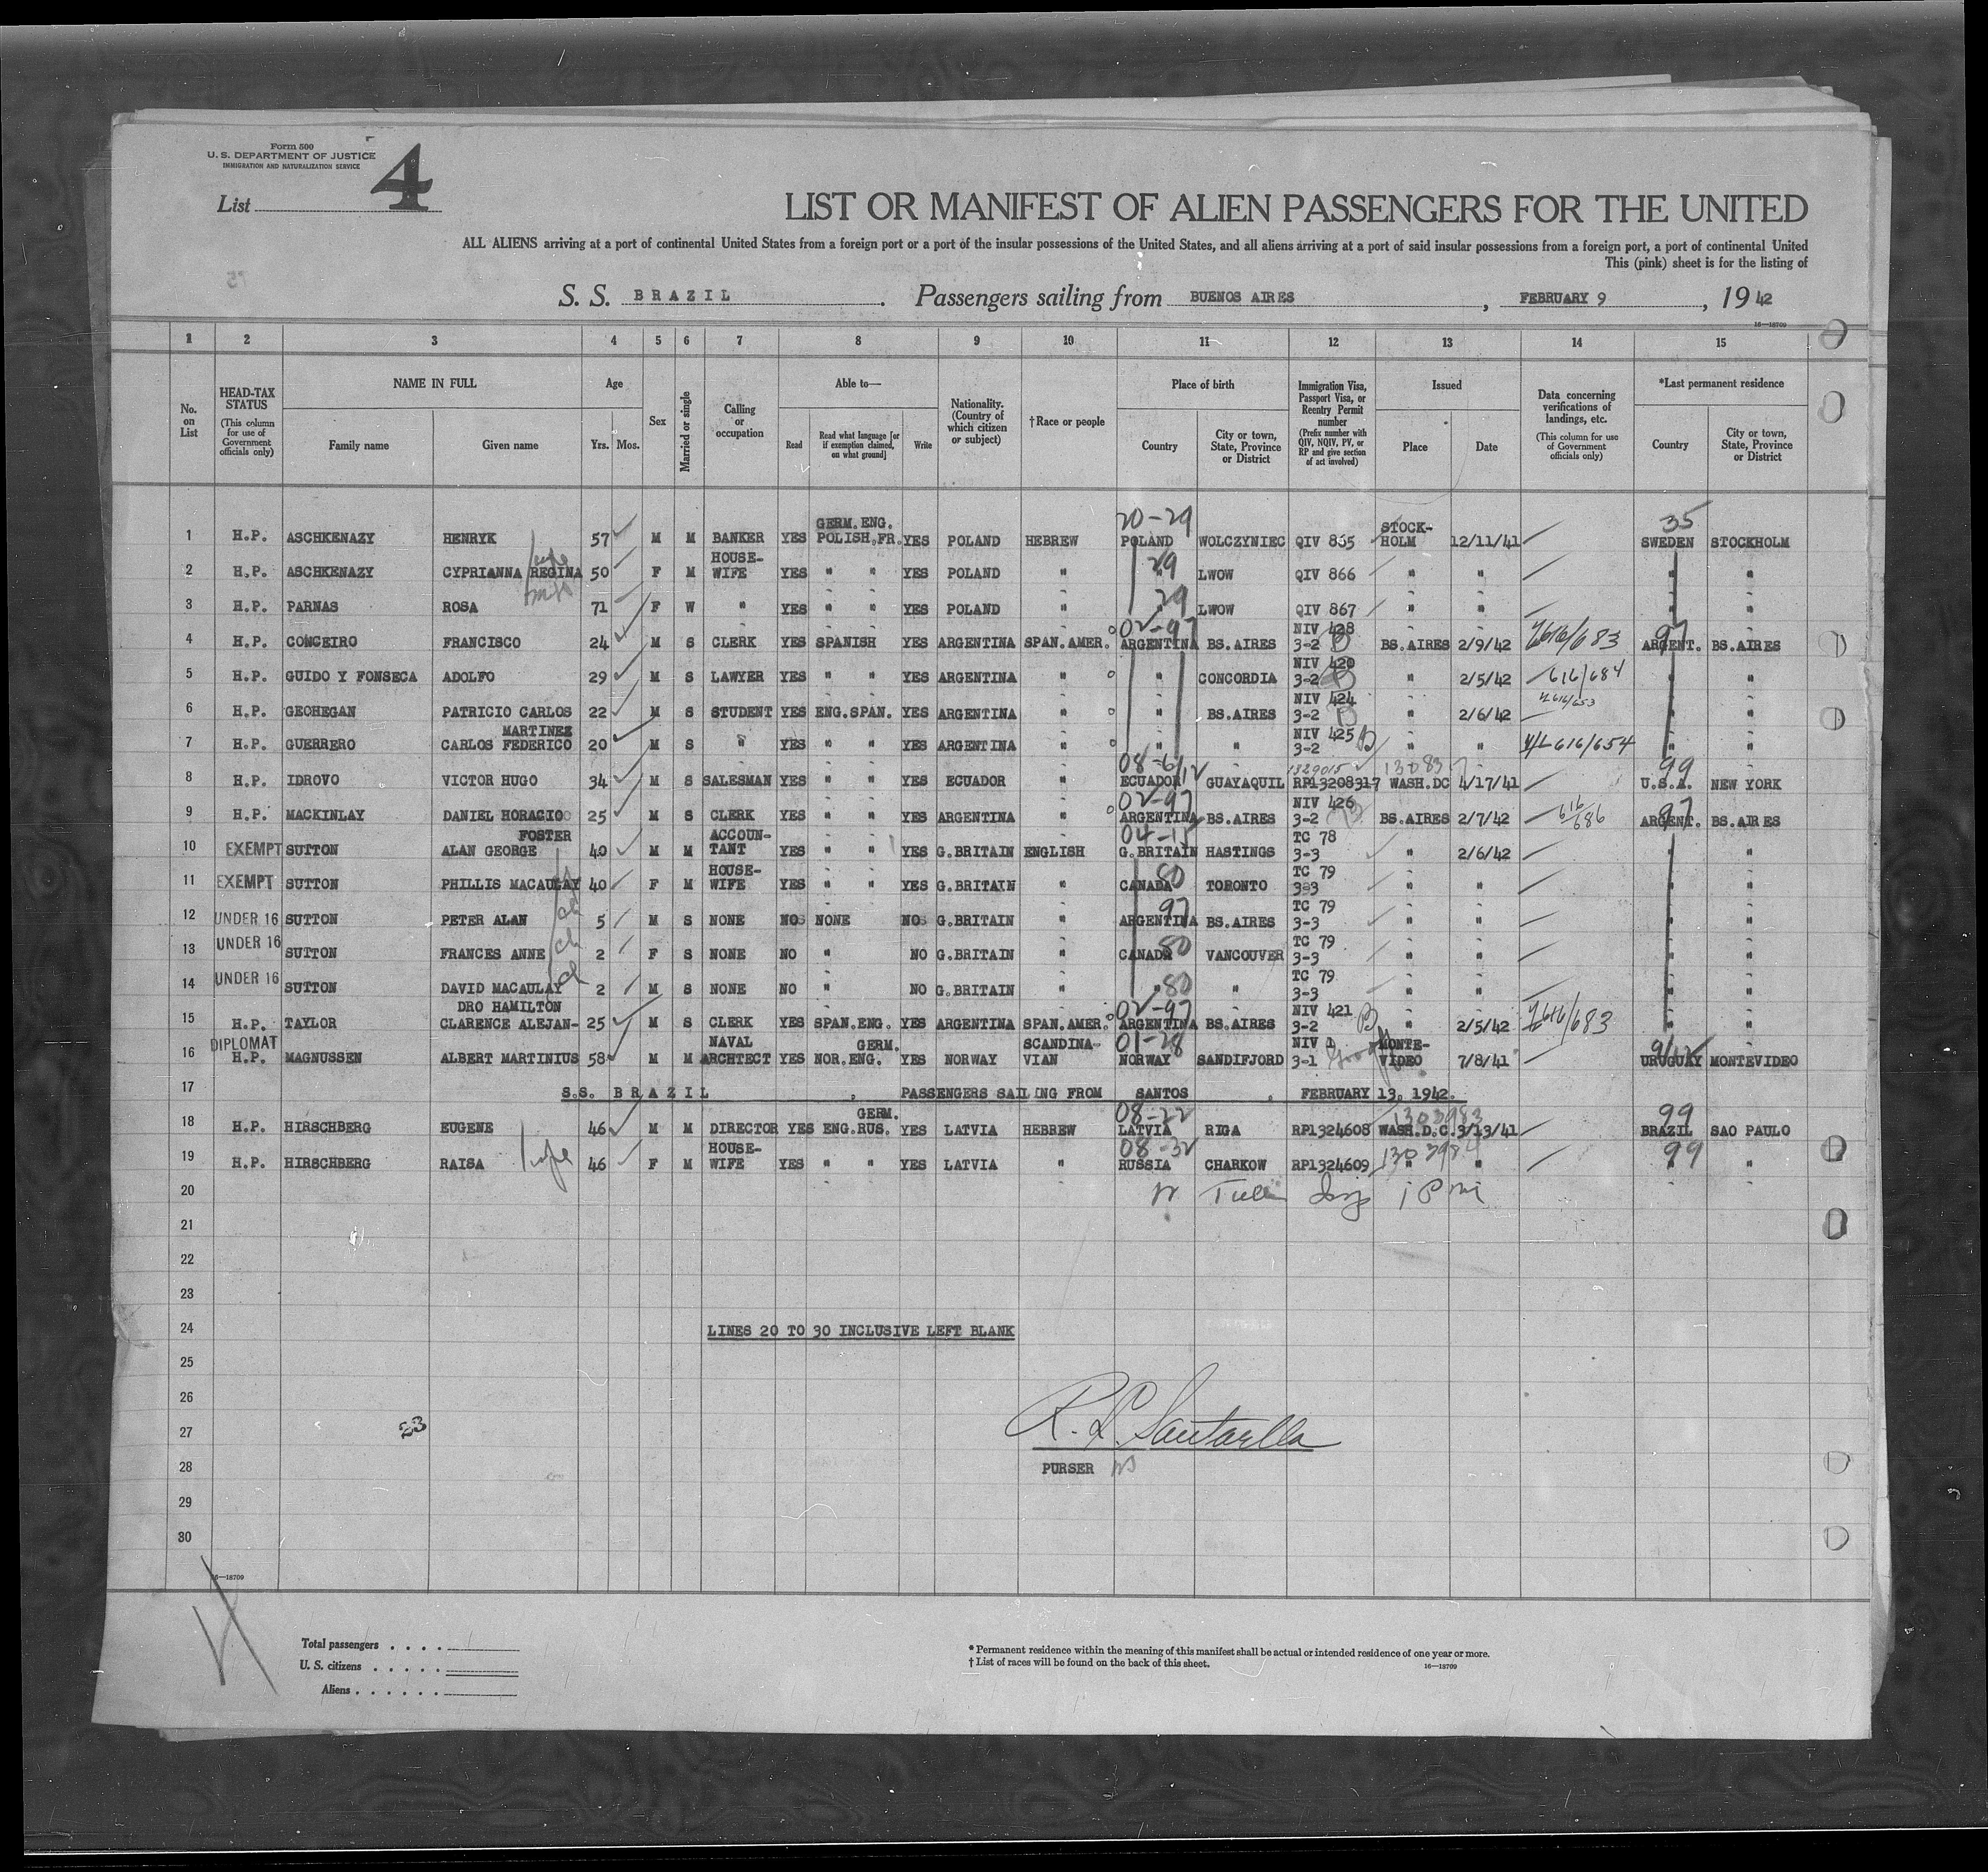 Form 500
U. S. DEPARTMENT OF JUSTICE
IMMIGRATION AND NATURALIZATION SERVICE
List 4
LIST OR MANIFEST OF ALIEN PASSENGERS FOR THE UNITED
ALL ALIENS arriving at a port of continental United States from a foreign port or a port of the insular possessions of the United States, and all aliens arriving at a port of said insular possessions from a foreign port, a port of continental United
This (pink) sheet is for the listing of
S. S. BRAZIL . Passengers sailing from BUENOS AIRES , FEBRUARY 9 , 19 42
16—18709
1 2 3 4 5 6 7 8 9 10 11 12 13 14 15
No. on List
HEAD-TAX STATUS (This column for use of Government officials only)
NAME IN FULL Family name Given name
Age Yrs. Mos.
Sex
Married or single
Calling or occupation
Able to— Read Read what language [or if exemption claimed, on what ground] Write
Nationality. (Country of which citizen or subject)
†Race or people
Place of birth Country City or town, State, Province or District
Immigration Visa, Passport Visa, or Reentry Permit number (Prefix number with QIV, NQIV, PV, or RP and give section of act involved)
Issued Place Date
Data concerning verifications of landings, etc. (This column for use of Government officials only)
*Last permanent residence Country City or town, State, Province or District
1 H.P. ASCHKENAZY HENRYK 57 M M BANKER YES GERM.ENG. POLISH.FR. YES POLAND HEBREW 20-29 POLAND WOLCZYNIEC QIV 865 STOCK-HOLM 12/11/41 35 SWEDEN STOCKHOLM
2 H.P. ASCHKENAZY CYPRIANNA REGINA wife 50 F M HOUSE-WIFE YES " " YES POLAND " 29 " LWOW QIV 866 " " " "
3 H.P. PARNAS ROSA 71 F W " YES " " YES POLAND " 29 " LWOW QIV 867 " " " "
4 H.P. CONCEIRO FRANCISCO 24 M S CLERK YES SPANISH YES ARGENTINA SPAN.AMER. 02-97 ARGENTINA BS.AIRES NIV 428 3-2 B BS.AIRES 2/9/42 616/683 97 ARGENT. BS.AIRES
5 H.P. GUIDO Y FONSECA ADOLFO 29 M S LAWYER YES " " YES ARGENTINA " " CONCORDIA NIV 420 3-2 B " 2/5/42 616/684 " "
6 H.P. GECHEGAN PATRICIO CARLOS 22 M S STUDENT YES ENG.SPAN. YES ARGENTINA " " BS.AIRES NIV 424 3-2 B " 2/6/42 616/653 " "
7 H.P. GUERRERO MARTINEZ CARLOS FEDERICO 20 M S " YES " " YES ARGENTINA " " " NIV 425 3-2 B " " 616/654 " "
8 H.P. IDROVO VICTOR HUGO 34 M S SALESMAN YES " " YES ECUADOR " ECUADOR GUAYAQUIL 1329015 RP13208317 13083 WASH.DC 4/17/41 99 U.S.A. NEW YORK
9 H.P. MACKINLAY DANIEL HORACIO 25 M S CLERK YES " " YES ARGENTINA " 02-97 ARGENTINA BS.AIRES NIV 426 3-2 B BS.AIRES 2/7/42 616/686 97 ARGENT. BS.AIRES
10 EXEMPT SUTTON FOSTER ALAN GEORGE 40 M M ACCOUN-TANT YES " " YES G.BRITAIN ENGLISH 04-15 G.BRITAIN HASTINGS TC 78 3-3 " 2/6/42 " "
11 EXEMPT SUTTON PHILLIS MACAULAY 40 F M HOUSE-WIFE YES " " YES G.BRITAIN " 80 CANADA TORONTO TC 79 3-3 " " " "
12 UNDER 16 SUTTON PETER ALAN ch 5 M S NONE NO NONE NO G.BRITAIN " 97 ARGENTINA BS.AIRES TC 79 3-3 " " " "
13 UNDER 16 SUTTON FRANCES ANNE ch 2 F S NONE NO " NO G.BRITAIN " 80 CANADA VANCOUVER TC 79 3-3 " " " "
14 UNDER 16 SUTTON DAVID MACAULAY ch 2 M S NONE NO " NO G.BRITAIN " 80 " " TC 79 3-3 " " " "
15 H.P. TAYLOR DRO HAMILTON CLARENCE ALEJAN- 25 M S CLERK YES SPAN.ENG. YES ARGENTINA SPAN.AMER. 02-97 ARGENTINA BS.AIRES NIV 421 3-2 B " 2/5/42 616/683 " "
16 DIPLOMAT H.P. MAGNUSSEN ALBERT MARTINIUS 58 M M NAVAL ARCHTECT YES GERM. NOR.ENG. YES NORWAY SCANDINA-VIAN 01-28 NORWAY SANDIFJORD NIV 1 3-1 MONTE-VIDEO 7/8/41 URUGUAY MONTEVIDEO
17 S.S. BRAZIL , PASSENGERS SAILING FROM SANTOS , FEBRUARY 13, 1942.
18 H.P. HIRSCHBERG EUGENE 46 M M DIRECTOR YES GERM. ENG.RUS. YES LATVIA HEBREW 08-22 LATVIA RIGA RP1324608 1303983 WASH.D.C. 3/13/41 99 BRAZIL SAO PAULO
19 H.P. HIRSCHBERG RAISA wife 46 F M HOUSE-WIFE YES " " YES LATVIA " 08-32 RUSSIA CHARKOW RP1324609 1303984 " " 99 " "
20
21
22
23
24 LINES 20 TO 30 INCLUSIVE LEFT BLANK
25
26
27 23 R. L. Santarella
28 PURSER
29
30
16—18709
Total passengers . . . .
U. S. citizens . . . . .
Aliens . . . . . .
* Permanent residence within the meaning of this manifest shall be actual or intended residence of one year or more.
† List of races will be found on the back of this sheet.
16—18709